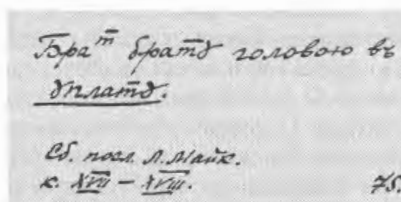 Бра^т братꙋ головою въ
ꙋплатꙋ.
Сб. посл. Л. Майк.
к. XVII – XVIII.
75.